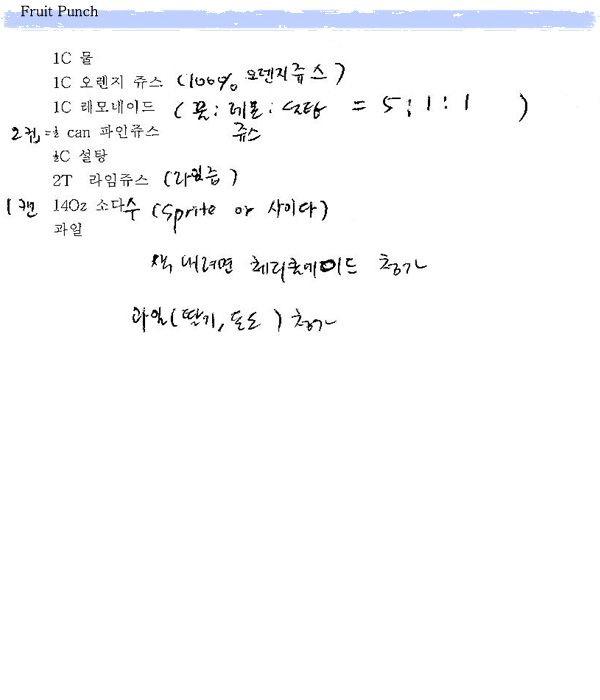 Fruit Punch
1C 물
1C 오렌지 쥬스 (100% 오렌지쥬스)
1C 래모네이드 (물:레몬:설탕 = 5:1:1)
쥬스
2컵,=½ can 파인쥬스
½C 설탕
2T 라임쥬스 (라임즙)
1캔 14Oz 소다수 (Sprite or 사이다)
과일
색 내려면 체리쿨에이드 첨가
과일(딸기, 포도) 첨가